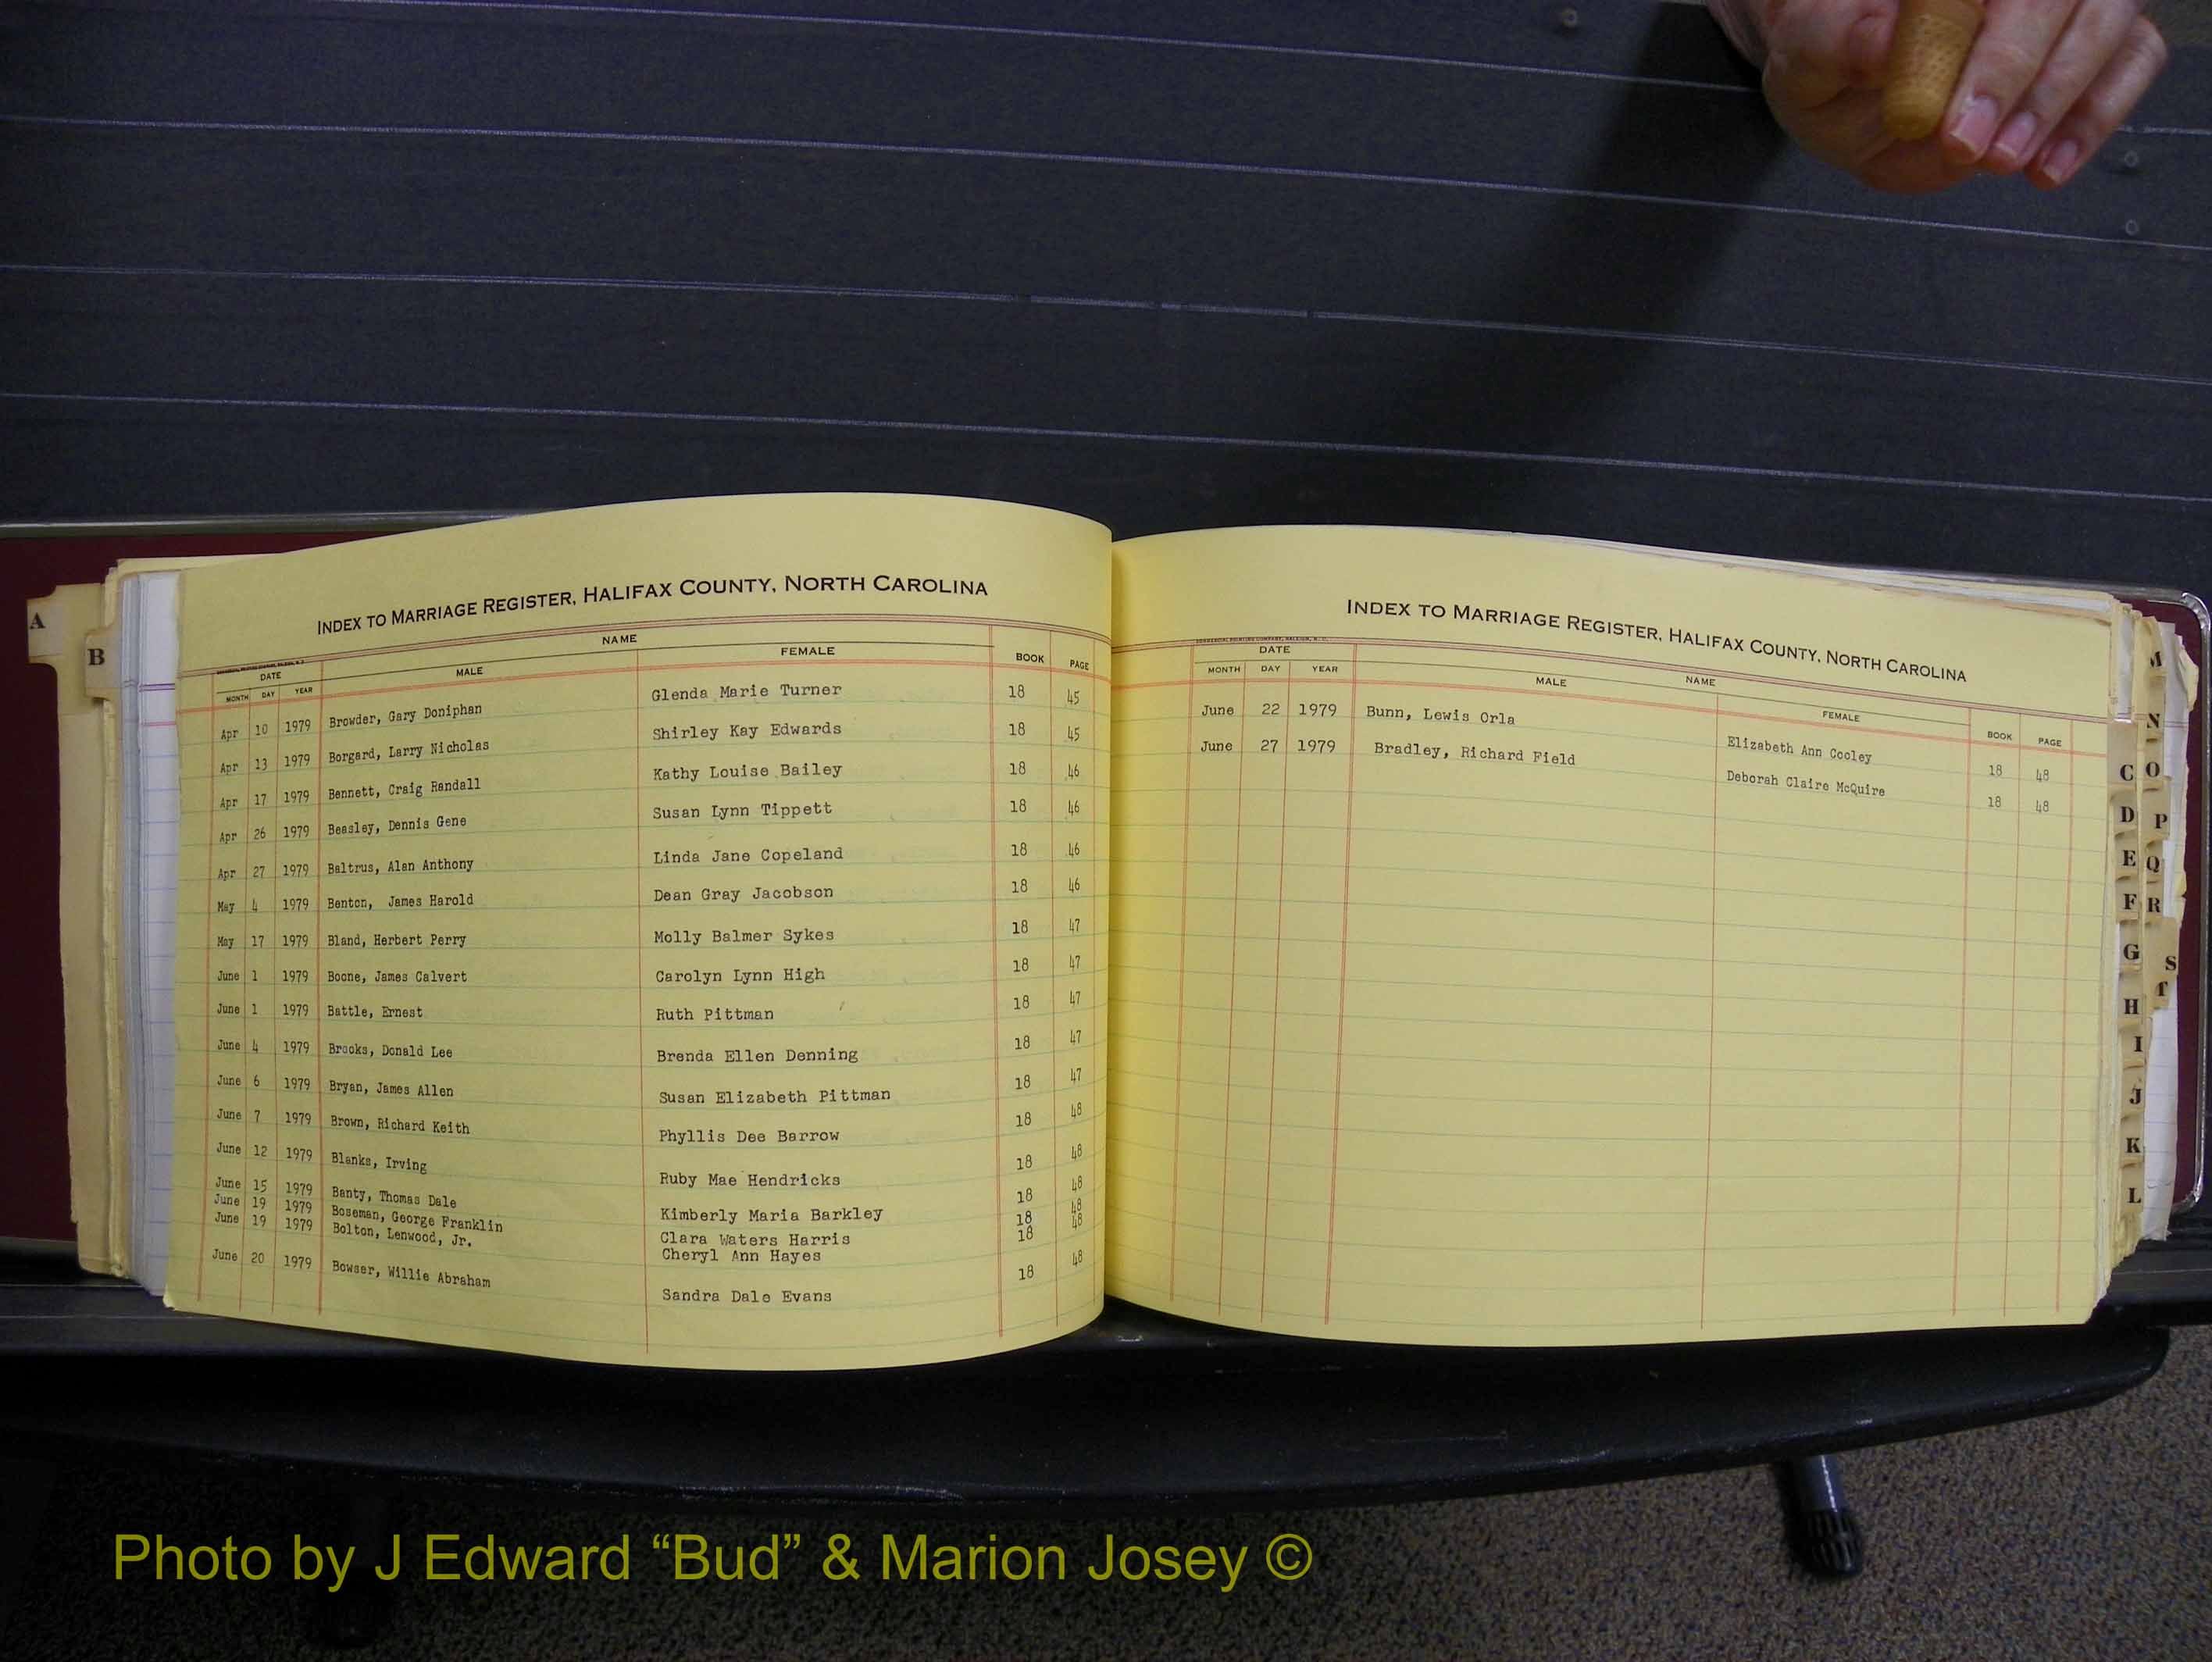 A
B
INDEX TO MARRIAGE REGISTER, HALIFAX COUNTY, NORTH CAROLINA
DATE NAME
MONTH DAY YEAR MALE FEMALE BOOK PAGE
Apr 10 1979 Browder, Gary Doniphan Glenda Marie Turner 18 45
Apr 13 1979 Borgard, Larry Nicholas Shirley Kay Edwards 18 45
Apr 17 1979 Bennett, Craig Randall Kathy Louise Bailey 18 46
Apr 26 1979 Beasley, Dennis Gene Susan Lynn Tippett 18 46
Apr 27 1979 Baltrus, Alan Anthony Linda Jane Copeland 18 46
May 4 1979 Benton, James Harold Dean Gray Jacobson 18 46
May 17 1979 Bland, Herbert Perry Molly Balmer Sykes 18 47
June 1 1979 Boone, James Calvert Carolyn Lynn High 18 47
June 1 1979 Battle, Ernest Ruth Pittman 18 47
June 4 1979 Brooks, Donald Lee Brenda Ellen Denning 18 47
June 6 1979 Bryan, James Allen Susan Elizabeth Pittman 18 47
June 7 1979 Brown, Richard Keith Phyllis Dee Barrow 18 48
June 12 1979 Blanks, Irving Ruby Mae Hendricks 18 48
June 15 1979 Banty, Thomas Dale Kimberly Maria Barkley 18 48
June 19 1979 Boseman, George Franklin Clara Waters Harris 18 48
June 19 1979 Bolton, Lenwood, Jr. Cheryl Ann Hayes 18 48
June 20 1979 Bowser, Willie Abraham Sandra Dale Evans 18 48
INDEX TO MARRIAGE REGISTER, HALIFAX COUNTY, NORTH CAROLINA
COMMERCIAL PRINTING COMPANY, RALEIGH, N. C.
DATE NAME
MONTH DAY YEAR MALE FEMALE BOOK PAGE
June 22 1979 Bunn, Lewis Orla Elizabeth Ann Cooley 18 48
June 27 1979 Bradley, Richard Field Deborah Claire McQuire 18 48
M
N
C O
D P
E Q
F R
G S
H T
I
J
K
L
Photo by J Edward “Bud” & Marion Josey ©